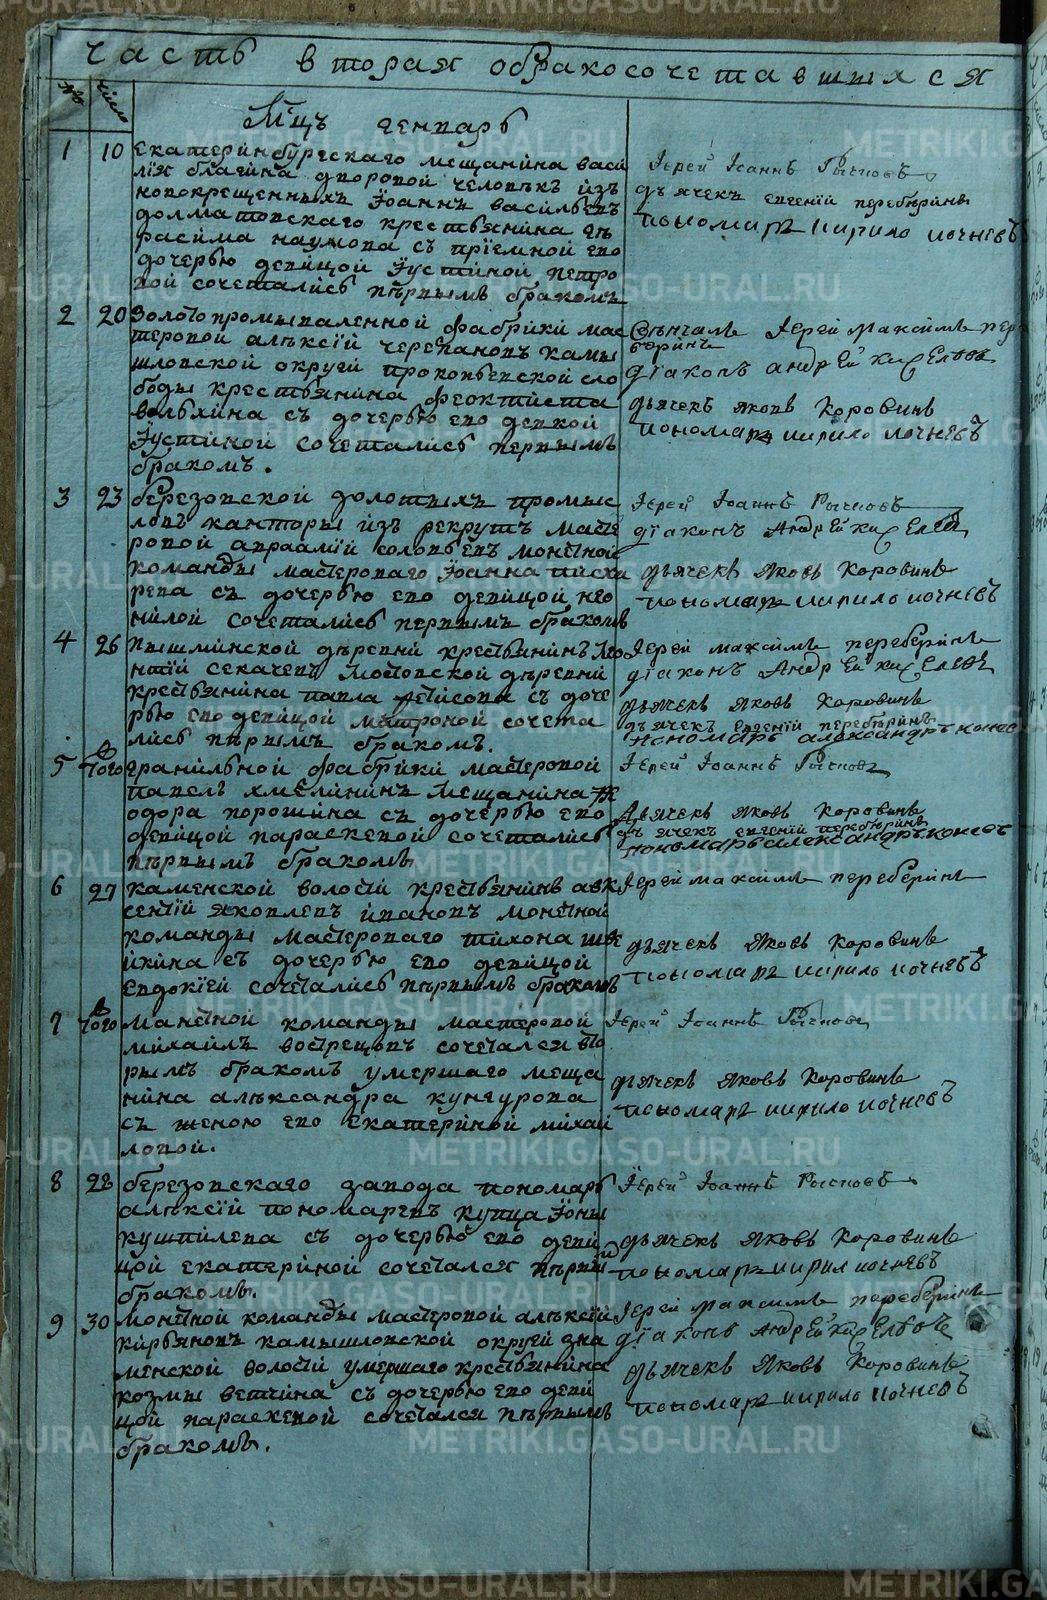 часть вторая обракосочетавшихся
№ число
Мцъ генварь
1 10 Екатеринбургскаго мещанина васи
лїя благина дворовой человѣкъ изъ
новокрещенныхъ Їоаннъ васильевъ
долматовскаго крестьянина ге
расима наумова съ прїемной ево
дочерью девицой Їустиной петро
вой сочетались пѣрвымъ бракомъ
Їерей Їоаннъ
дьячекъ евгенїй переберинъ
пономарь кирило кочневъ
2 20 Золотопромываленной фабрики мас
теровой алѣксїй черепановъ камы
шловской округи прокопьевской сло
боды крестьянина феоктиста
с дочерью ево девкой
Їустиной сочетались первымъ
бракомъ.
Вѣнчалъ Їерей Максимъ пере
беринъ
дїаконъ андрей киселевъ
дьячекъ яковъ Коровинъ
пономарь кирило кочневъ
3 23 березовской золотыхъ промыс
ловъ канторы изъ рекрутъ масте
ровой авраамїй соловьевъ монетной
команды мастероваго Їоанна писка
рева съ дочерью ево девицой нео
нилой сочетались первымъ бракомъ
Їерей Їоаннъ
дїаконъ Андрей киселевъ
дьячекъ Яковъ Коровинъ
пономарь кирило кочневъ
4 26 пышминской деревни крестьянинъ лео
нтїй секачевъ мостовской деревни
крестьянина павла с доче
рью ево девицой матроной сочета
лись пѣрвымъ бракомъ.
Їерей максимъ переберинъ
дїаконъ Андрей киселевъ
дьячекъ Яковъ Коровинъ
дьячекъ евгенїй переберинъ
пономарь александръ
5 того гранильной фабрики мастеровой
павелъ хмелининъ мещанина фе
одора порошина съ дочерью ево
девицой параскевой сочетались
пѣрвымъ бракомъ
Їерей Їоаннъ
Дьячекъ Яковъ Коровинъ
дьячекъ евгенїй переберинъ
пономарь александръ
6 27 каменской волости крестьянинъ авк
сентїй яковлевъ ивановъ монетной
команды мастероваго тихона
с дочерью ево девицой
евдокїей сочетались пѣрвымъ бракомъ
Їерей максимъ переберинъ
дьячекъ Яковъ Коровинъ
пономарь кирило кочневъ
7 того манетной команды мастеровой
михаилъ вострецовъ сочетался вто
рымъ бракомъ умершаго меща
нина алѣксандра кунгурова
съ женою ево екатериной михаи
ловой.
Їерей Їоаннъ
дьячекъ Яковъ Коровинъ
пономарь кирило кочневъ
8 28 березовскаго завода пономарь
алѣксїй пономаревъ купца Їоны
кушпилева съ дочерью ево деви
цой екатериной сочетался пѣрвым
бракомъ.
Їерей Їоаннъ
дьячекъ Яковъ Коровинъ
пономарь кирил кочневъ
9 30 монетной команды мастеровой алѣксїй
кирьяновъ камышловской округи зна
менской волости умершаго крестьянина
козмы ветчина съ дочерью ево деви
цой параскевой сочетался пѣрвымъ
бракомъ.
Їерей максимъ переберинъ
дїаконъ Андрей киселевъ
дьячекъ Яковъ Коровинъ
пономарь кирило кочневъ
METRIKI.GASO-URAL.RU